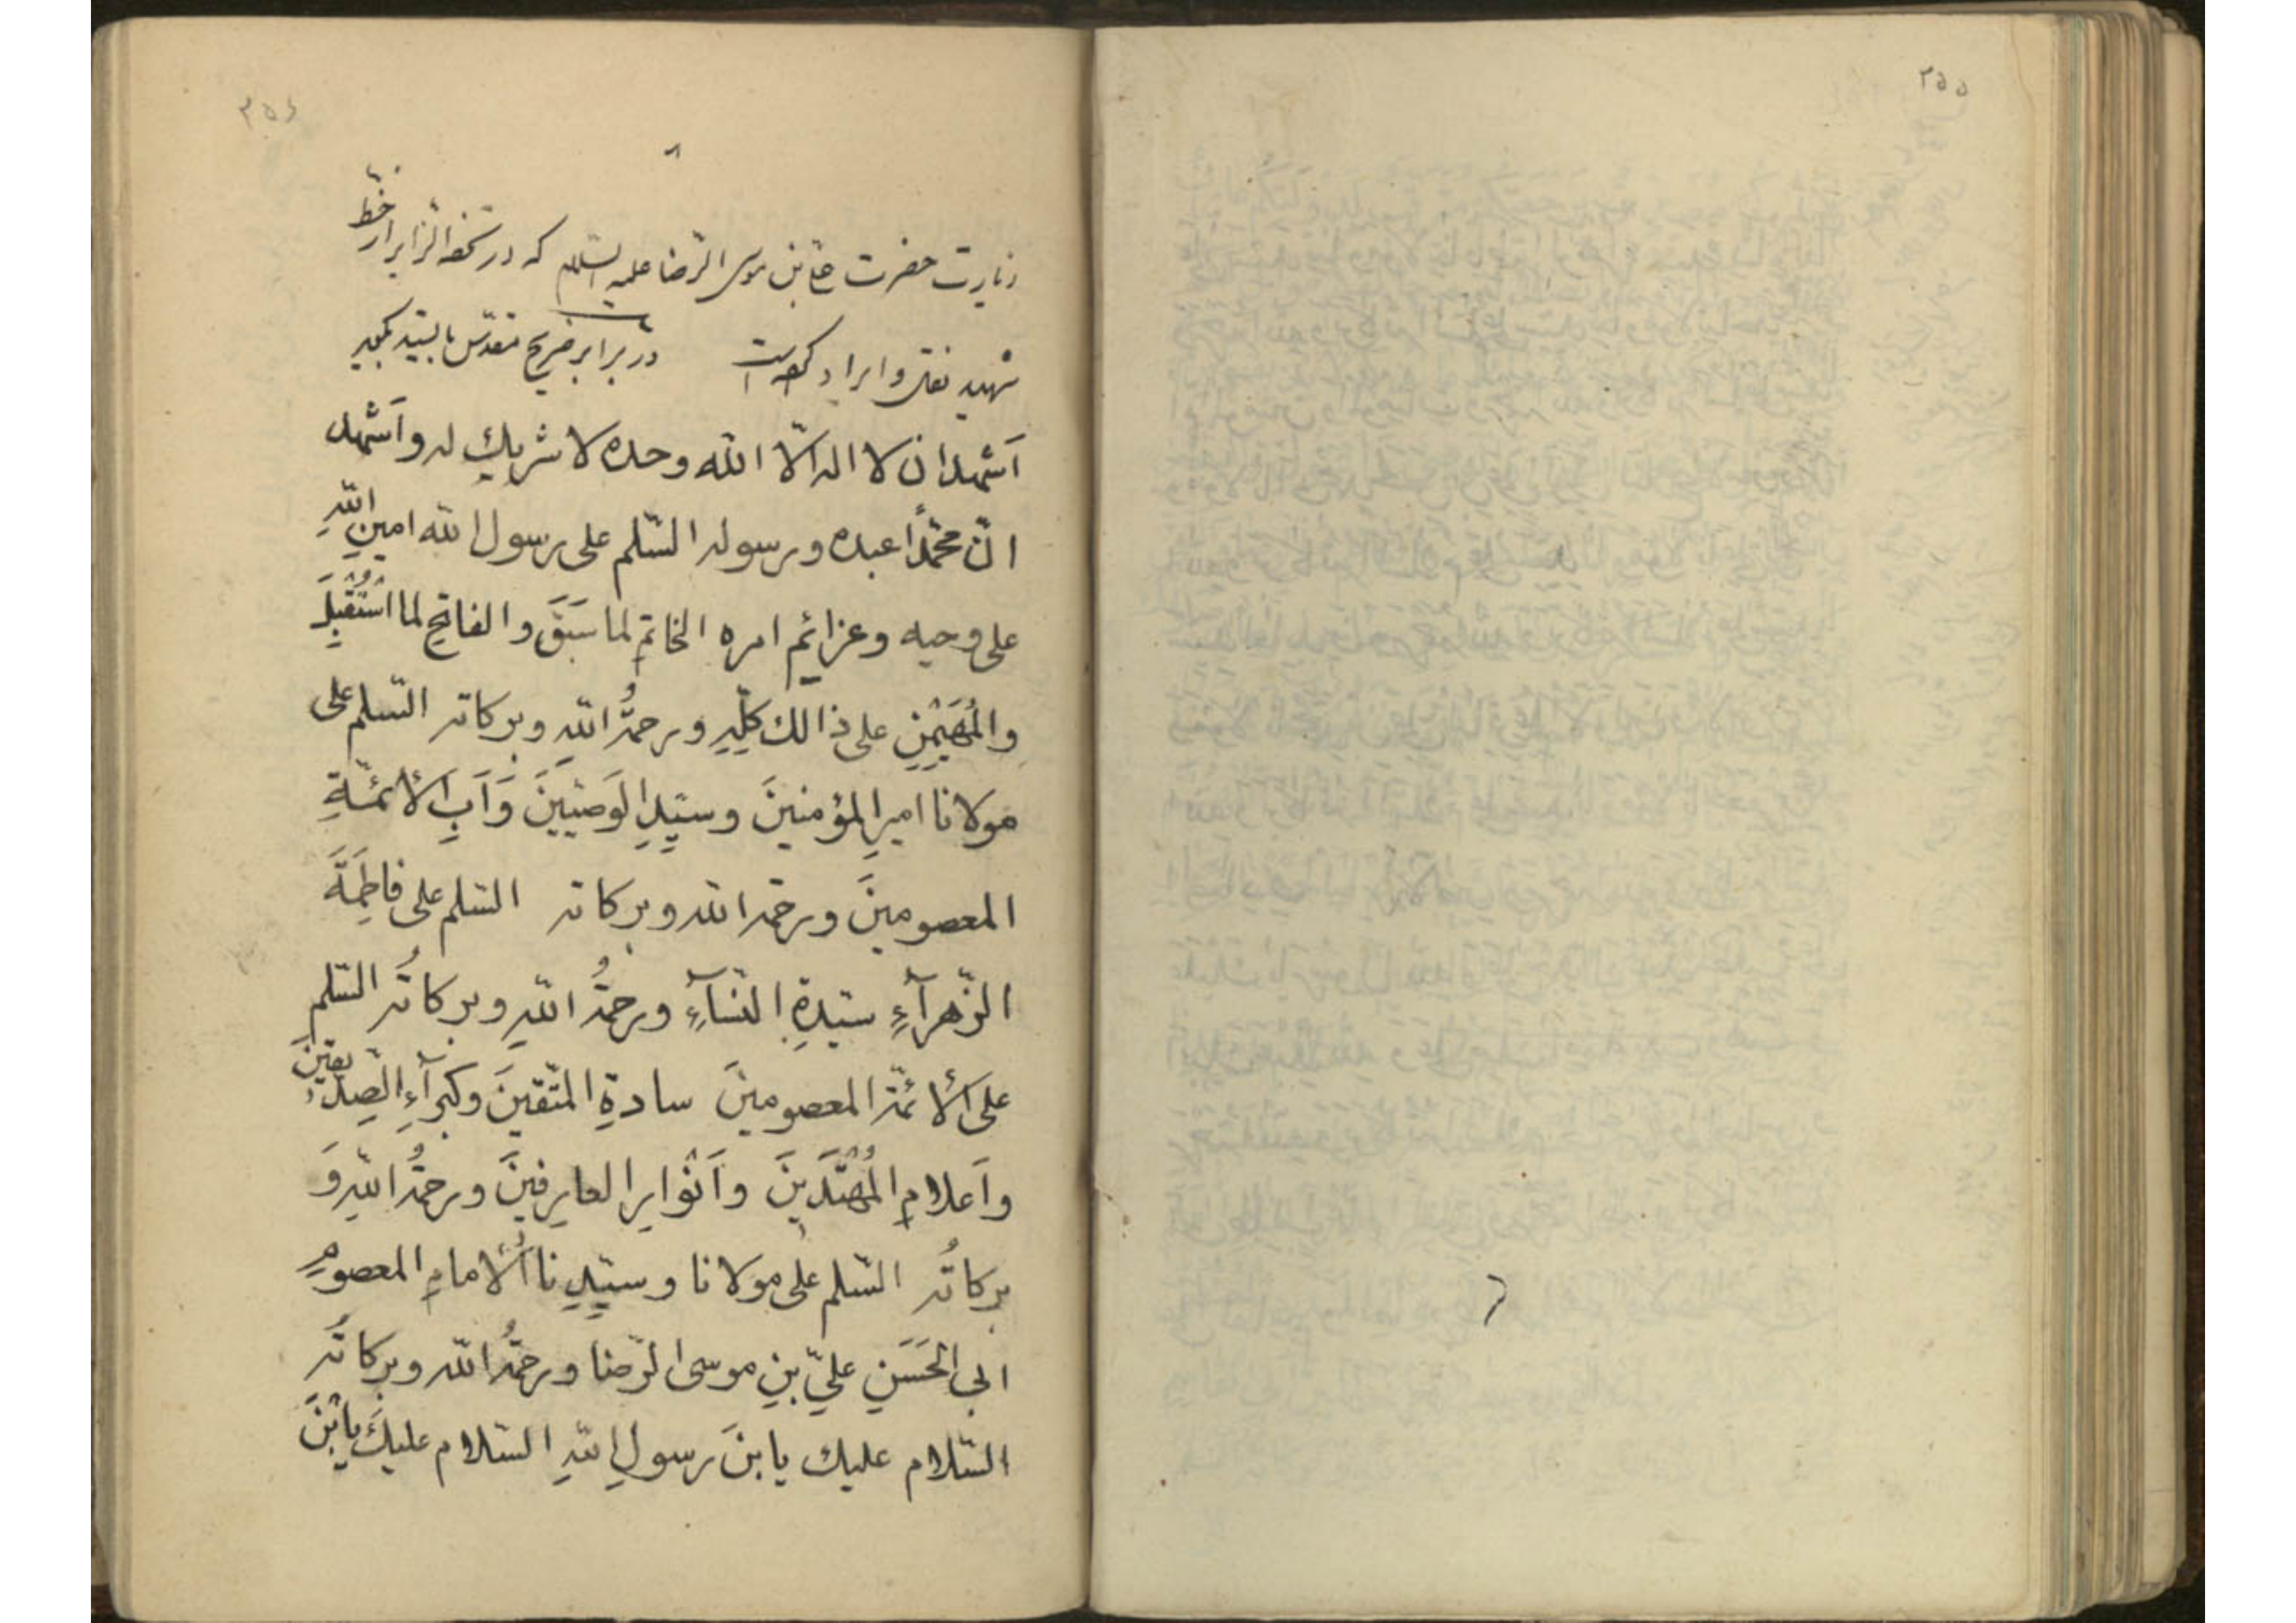 ٢٥٥
٢٥٤
زیارت حضرت علی بن موسی الرضا علیه السلام که در تحفة الزایر از خط
شهید نقل و ایراد کرده است در برابر ضریح مقدس بایستد بگوید
اَشهد ان لا اله الّا الله وحده لا شريك له واَشهد
انّ محمّداً عبده ورسوله السّلم على رسول الله امينِ اللهِ
على وحيه وعزائمِ امره الخاتمِ لما سَبَقَ والفاتحِ لما اسْتُقْبِلَ
والمُهَيْمِنِ على ذالك كلِّهِ ورحمةُ اللهِ وبركاته السّلم على
مولانا اميرِ المؤمنينَ وسيّدِ الوَصيّينَ وَاَبِ الأئمّةِ
المعصومينَ ورحمة الله وبركاته السّلم على فاطِمَةَ
الزّهرآءِ سيّدةِ النّسآءِ ورحمةُ اللهِ وبركاتُه السّلم
على الأئمّة المعصومينَ سادةِ المتّقينَ وكبرآءِ الصِدّيقينَ
واَعلامِ المُهْتَدينَ واَنْوارِ العارِفينَ ورحمةُ اللهِ وَ
بركاتُه السّلم على مولانا وسيّدِنا الأمامِ المعصومِ
ابى الحَسَنِ علىِّ بنِ موسى الرّضا ورحمةُ الله وبركاتُه
السّلام عليك يا بنَ رسولِ اللهِ السّلام عليكَ يا بْنَ